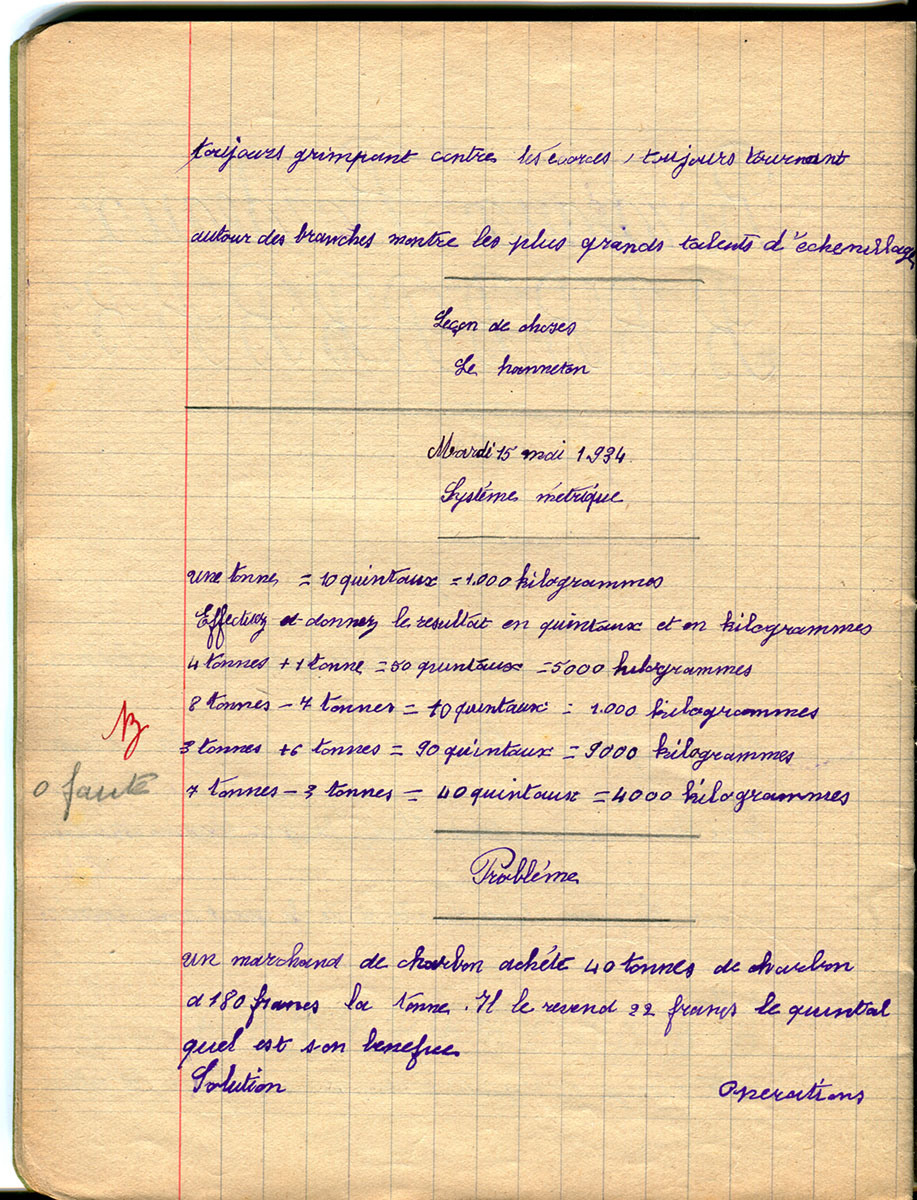 toujours grimpant contres les écorces, toujours tournant
autour des branches montre les plus grands talents d'échenillage
Leçon de choses
Le hanneton
Mardi 15 mai 1.934
Système métrique
une tonne = 10 quintaux = 1.000 kilogrammes
Effectuez et donnez le resultat en quintaux et en kilogrammes
4 tonnes + 1 tonne = 50 quintaux = 5000 kilogrammes
8 tonnes - 7 tonnes = 10 quintaux = 1.000 kilogrammes
3 tonnes + 6 tonnes = 90 quintaux = 9000 kilogrammes
B
0 faute
7 tonnes - 3 tonnes = 40 quintaux = 4000 kilogrammes
Problème
un marchand de charbon achéte 40 tonnes de charbon
a 180 francs la tonne. Il le revend 22 francs le quintal
quel est son benefice
Solution Operations